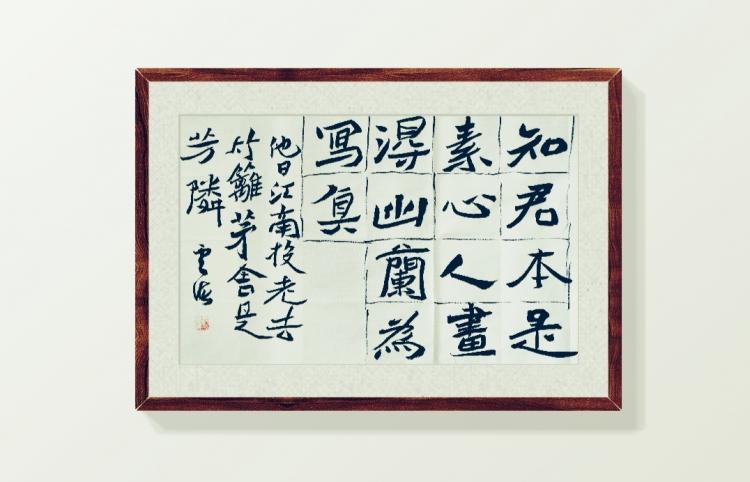 知君本是
素心人畫
得幽蘭為
寫真
他日江南投老去
竹籬茅舍是
芳隣
雲海